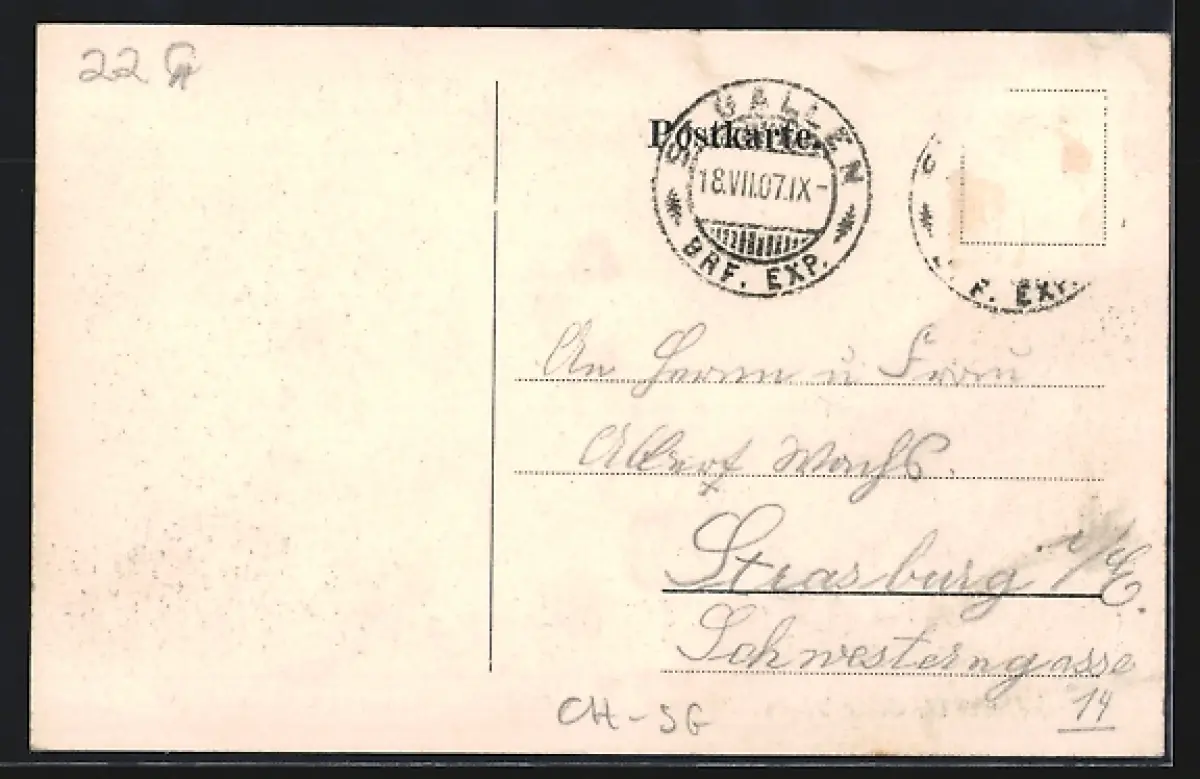 22
Postkarte.
ST. GALLEN
18.VII.07.IX-
BRF. EXP.
F. EXP.
An Herrn u Frau
Albert Wachs.
Strasburg i/E.
Schwesterngasse
14
CH-SG